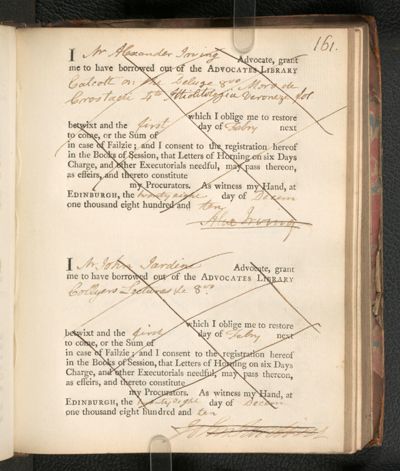 161.
I Mr Alexander Irving Advocate, grant
me to have borrowed out of the ADVOCATES LIBRARY
Calcott on the Deluge 8vo Moro de
Crostacei 4to Ittiolitologia Veronese fol
which I oblige me to restore
betwixt and the first day of Febry next
to come, or the Sum of
in case of Failzie; and I consent to the registration hereof
in the Books of Session, that Letters of Horning on six Days
Charge, and other Executorials needful, may pass thereon,
as effeirs, and thereto constitute
my Procurators. As witness my Hand, at
EDINBURGH, the twenty eight day of Decem
one thousand eight hundred and ten
Alex Irving
I Mr John Jardine Advocate, grant
me to have borrowed out of the ADVOCATES LIBRARY
Collyers Lectures 8vo
which I oblige me to restore
betwixt and the first day of Febry next
to come, or the Sum of
in case of Failzie; and I consent to the registration hereof
in the Books of Session, that Letters of Horning on six Days
Charge, and other Executorials needful, may pass thereon,
as effeirs, and thereto constitute
my Procurators. As witness my Hand, at
EDINBURGH, the twenty eight day of Decem
one thousand eight hundred and ten